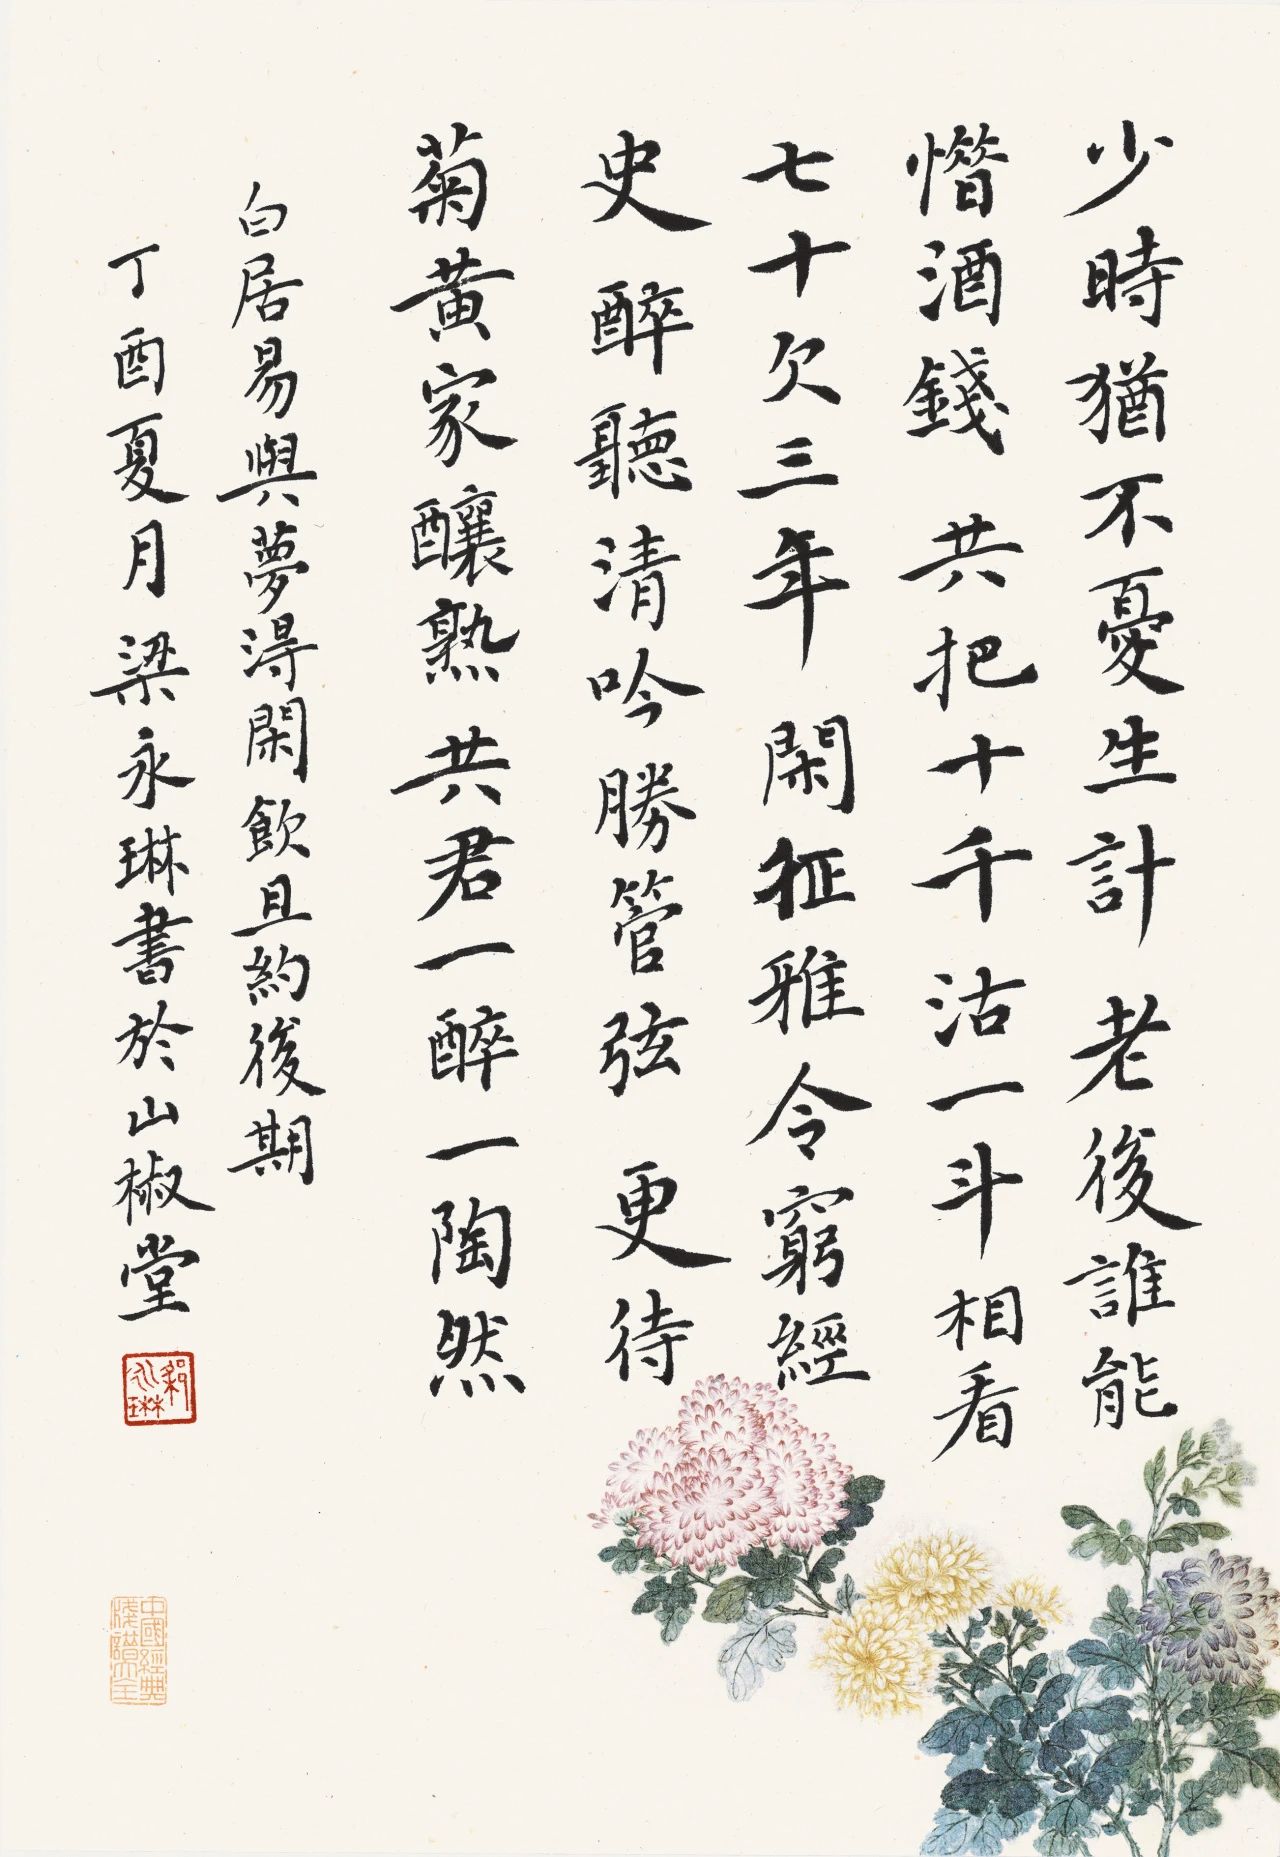 少時猶不憂生計 老後誰能
惜酒錢 共把十千沽一斗相看
七十欠三年 閑征雅令窮經
史 醉聽清吟勝管弦 更待
菊黄家釀熟 共君一醉一陶然
白居易與夢得閑飲且約後期
丁酉夏月梁永琳書於山椒堂
永琳
中國經典
譜大全